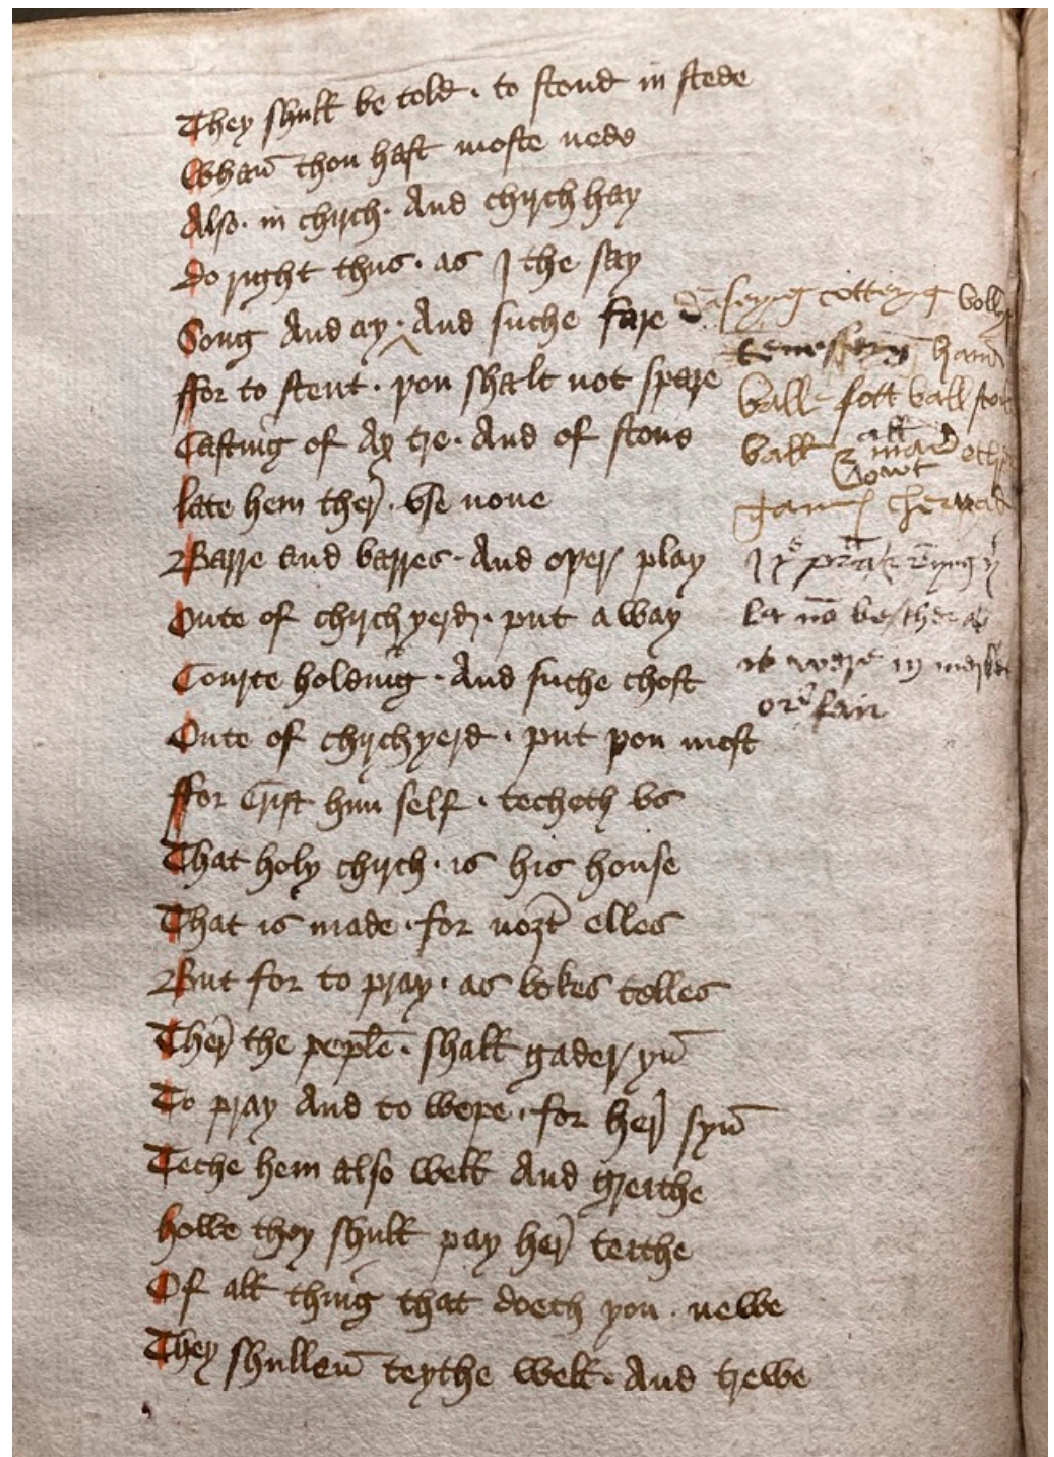 They shull be told · to stond in stede
Whan̄ thou hast moste nede
Also · in chyrch · And chyrch hay
Do ryght thus · as I the say
Song And cry · And suche fare
ffor to stent · þou shalt not spare
Casting of Ax tre · And of stone
late hem ther̄ · vse none
Barre and barres · And oþer play
Oute of chyrch yerd · put a way
Courte holding · And suche chost
Oute of chyrchyerd · put þou most
ffor Crist him self · techeth vs
That holy chyrch · is his house
That is made · for noȝt elles
But for to pray · as bokes telles
Ther̄ the peple · shall gader yn̄
To pray And to wepe · for her̄ syn̄
Teche hem also well And greithe
howe they shull pay her̄ teithe
Of all thing that doeth þou · newe
They shullen̄ teythe well · And trewe
daseyng cotteyng bollyng
hand
ball fott ball stoil
ball all mad other
& owt
gam cher
I
let no be ther as
it were in merket
or fair